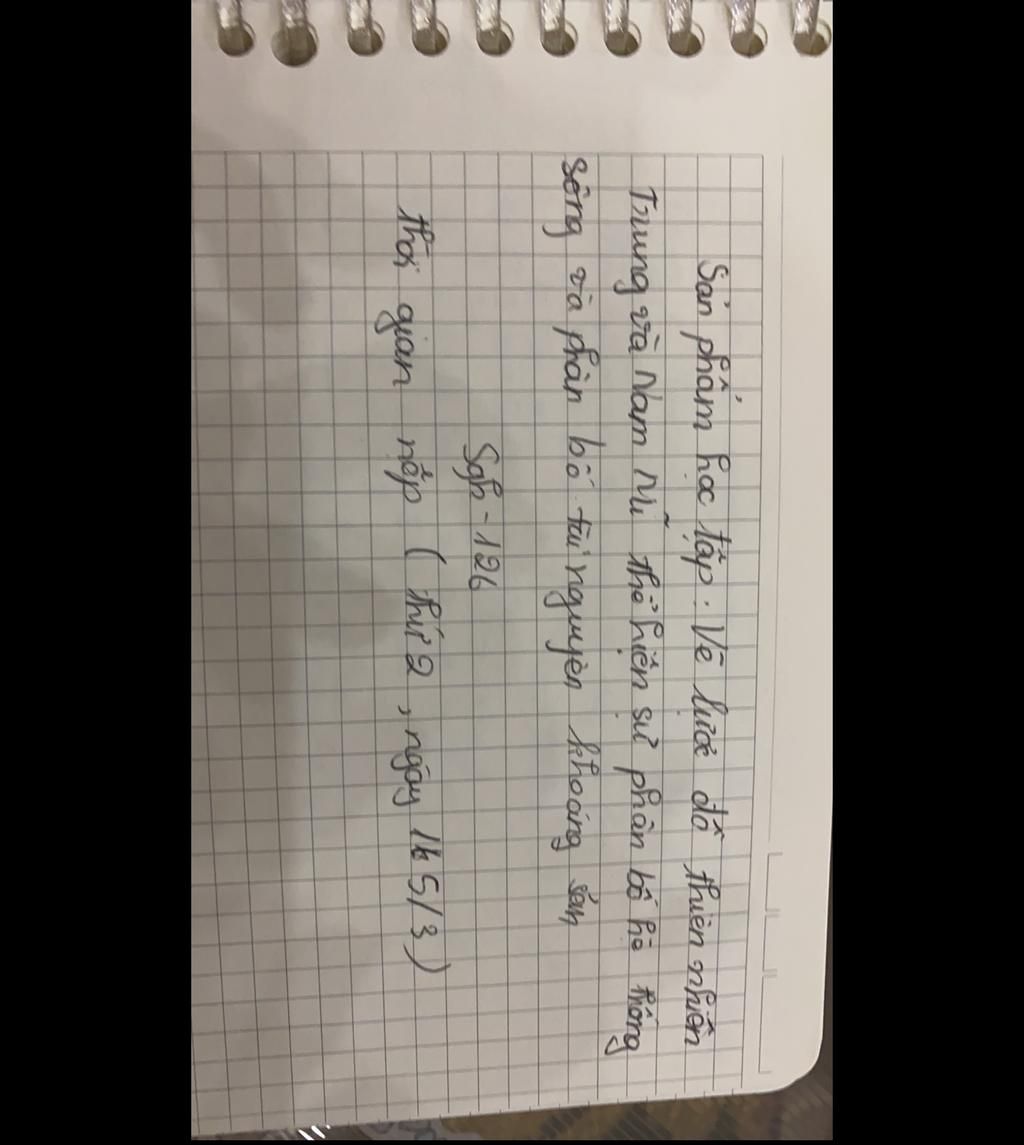 Sản phẩm học tập: Vẽ lược đồ thiên nhiên
Trung và Nam Mĩ thể hiện sự phân bố hệ thống
sông và phân bố tài nguyên khoáng sản
Sgk - 126
thời gian nộp ( thứ 2 , ngày 5/3 )